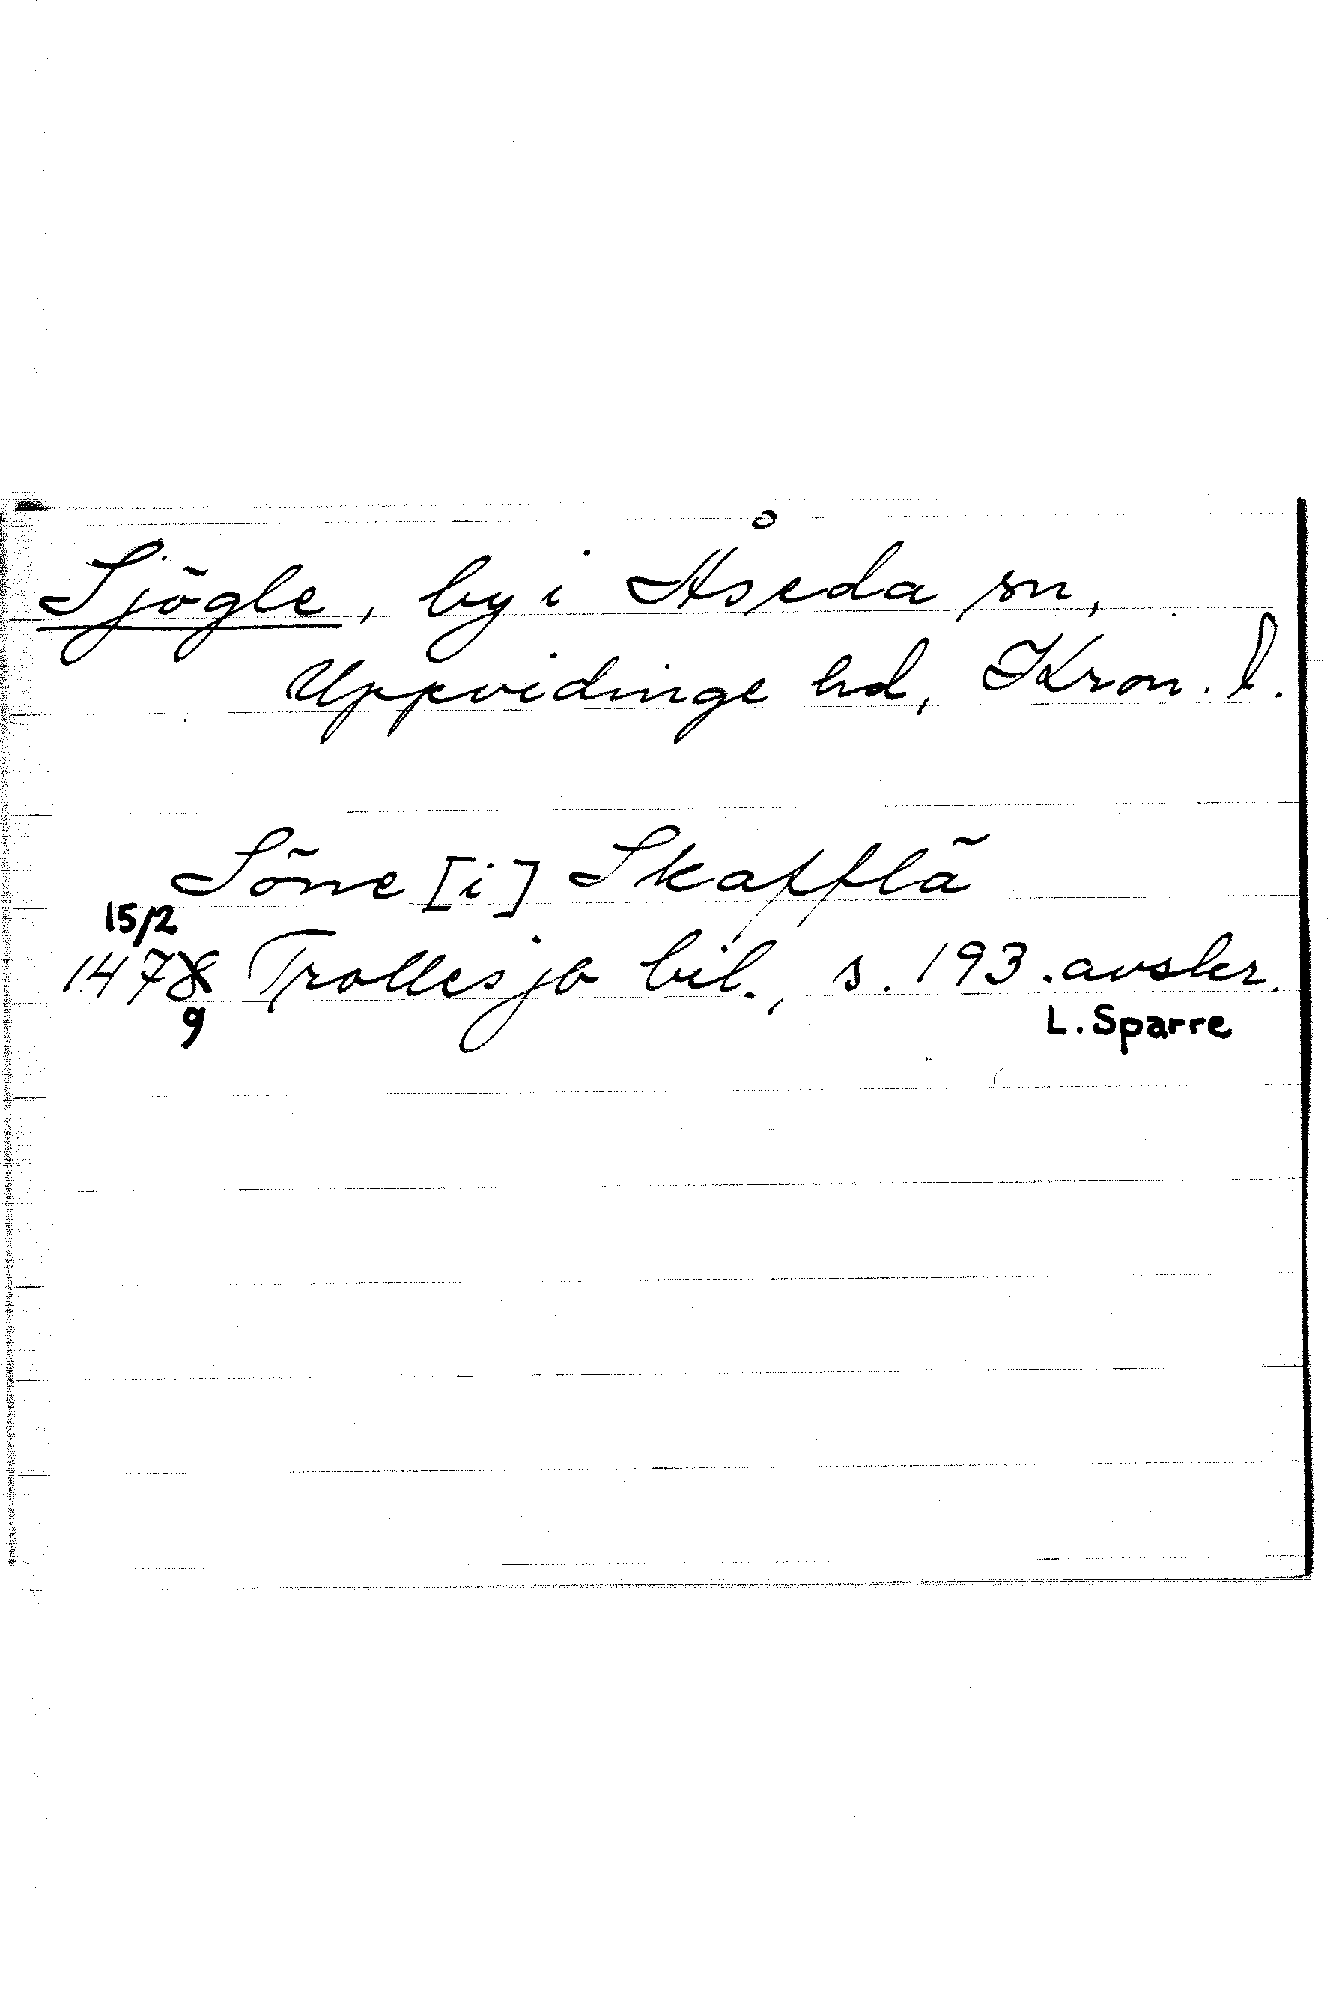 Sjögle, by i Åseda sn,
Uppvidinge hd, Kron. l.
Söne [i] Skafflä
15/2
1478 Trollesjö bil., s. 193. avskr.
9 L. Sparre